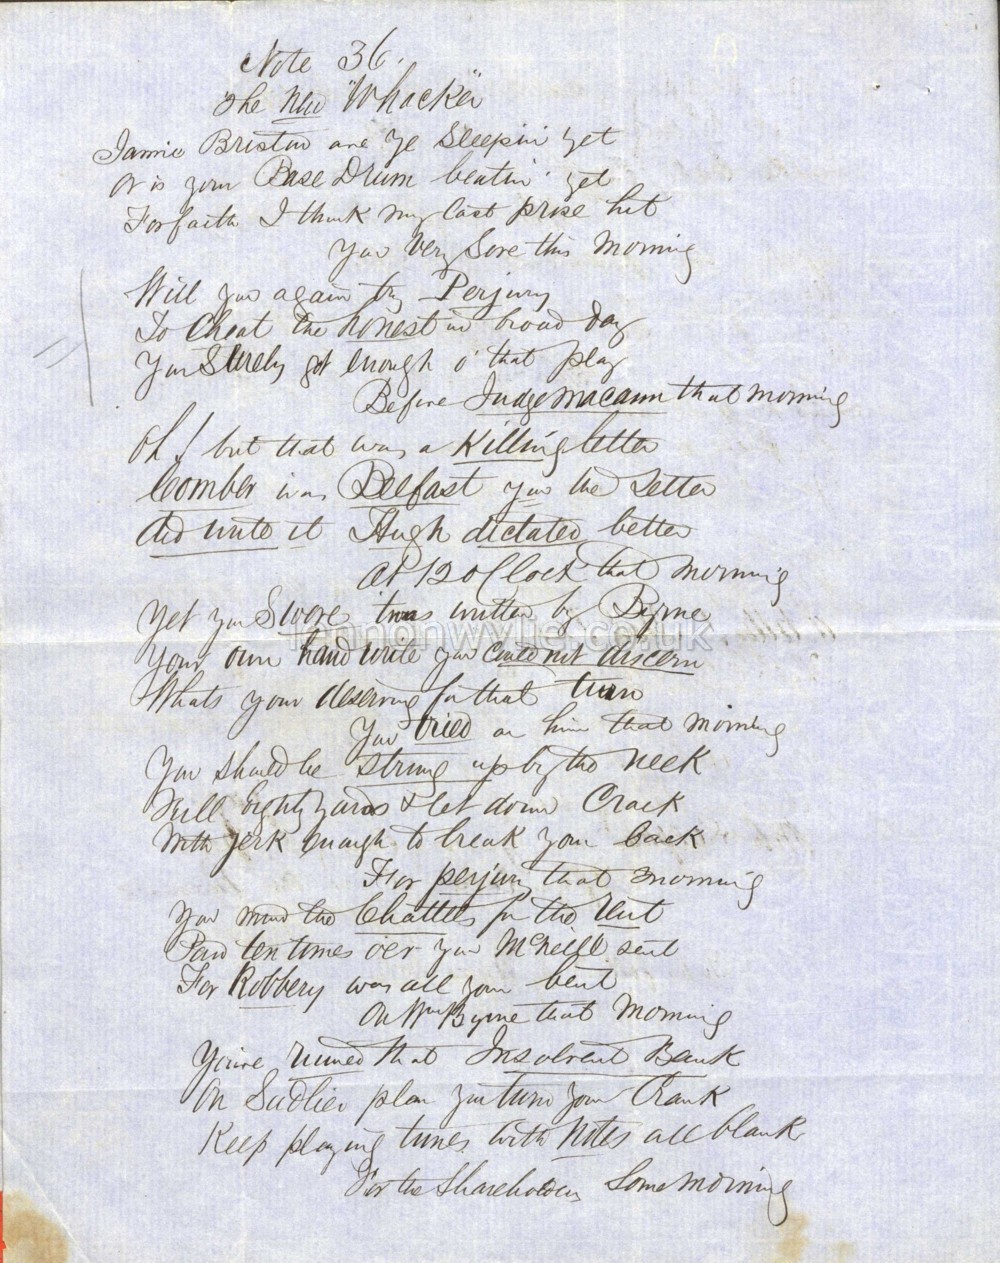 Note 36.
The New "Whacker"
Jamie Bristow are ye Sleepin' yet
Or is your Base Drum beatin' yet
For faith I think my last prise hit
You Very Sore this Morning
Will you again try Perjury
To Cheat the honest in broad day
You Surely got enough o' that play
Before Judge Macann that morning
Oh! but that was a Killing letter
Comber in Belfast you the Letter
did write it Hugh dictated better
At 12 o'Clock that morning
Yet you Swore 'twas written by Byrne
Your own hand write you could not discern
Whats your deserving for that turn
You tried on him that morning
You should be strung up by the neck
Full Eighty yards & let down Crack
With jerk enough to break your back
For perjury that morning
You mind the Chattels for the Rent
Paid ten times o'er you McNeill sent
For Robbery was all your bent
On Wm Byrne that Morning
You've ruined that Insolvent Bank
On Sadlier plan you turn your Crank
Keep playing tunes with Notes all blank
For the Shareholders Some Morning
lennonwylie.co.uk